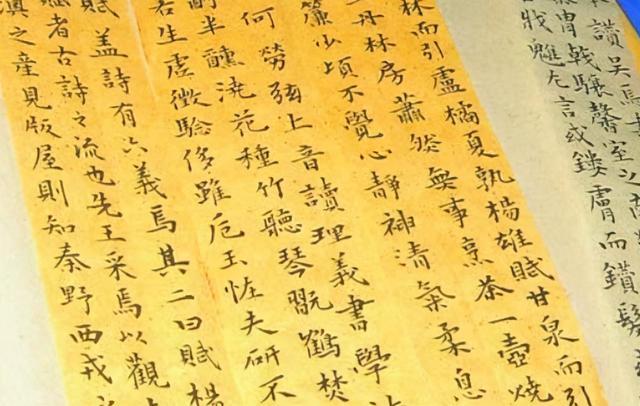 讚吳馬
驤馨室之
魋左言或鏤膚而鑽髮
林而引盧橘夏孰楊雄賦甘泉而引
丹林房蕭然無事烹茶一壺燒
簾少頃不覺心靜神清氣柔息
何勞弦上音讀理義書學
酌半醺澆花種竹聽琴翫鶴焚
若生虛徵驗侈雖卮玉恠夫研不
賦蓋詩有六義焉其二曰賦楊
者古詩之流也先王采焉以觀
之産見版屋則知秦野西戎